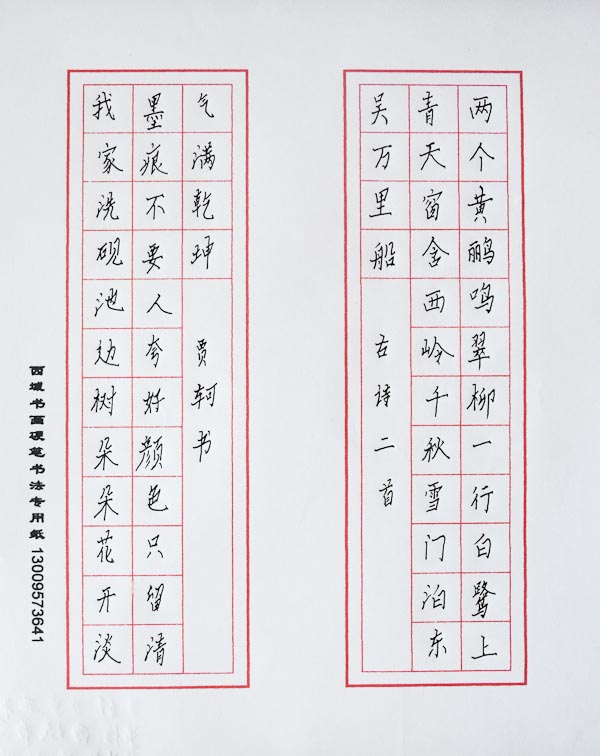 两个黄鹂鸣翠柳一行白鹭上
青天窗含西岭千秋雪门泊东
吴万里船
古诗二首
我家洗砚池边树朵朵花开淡
墨痕不要人夸好颜色只留清
气满乾坤
贾轲书
西域书画硬笔书法专用纸 13009573641